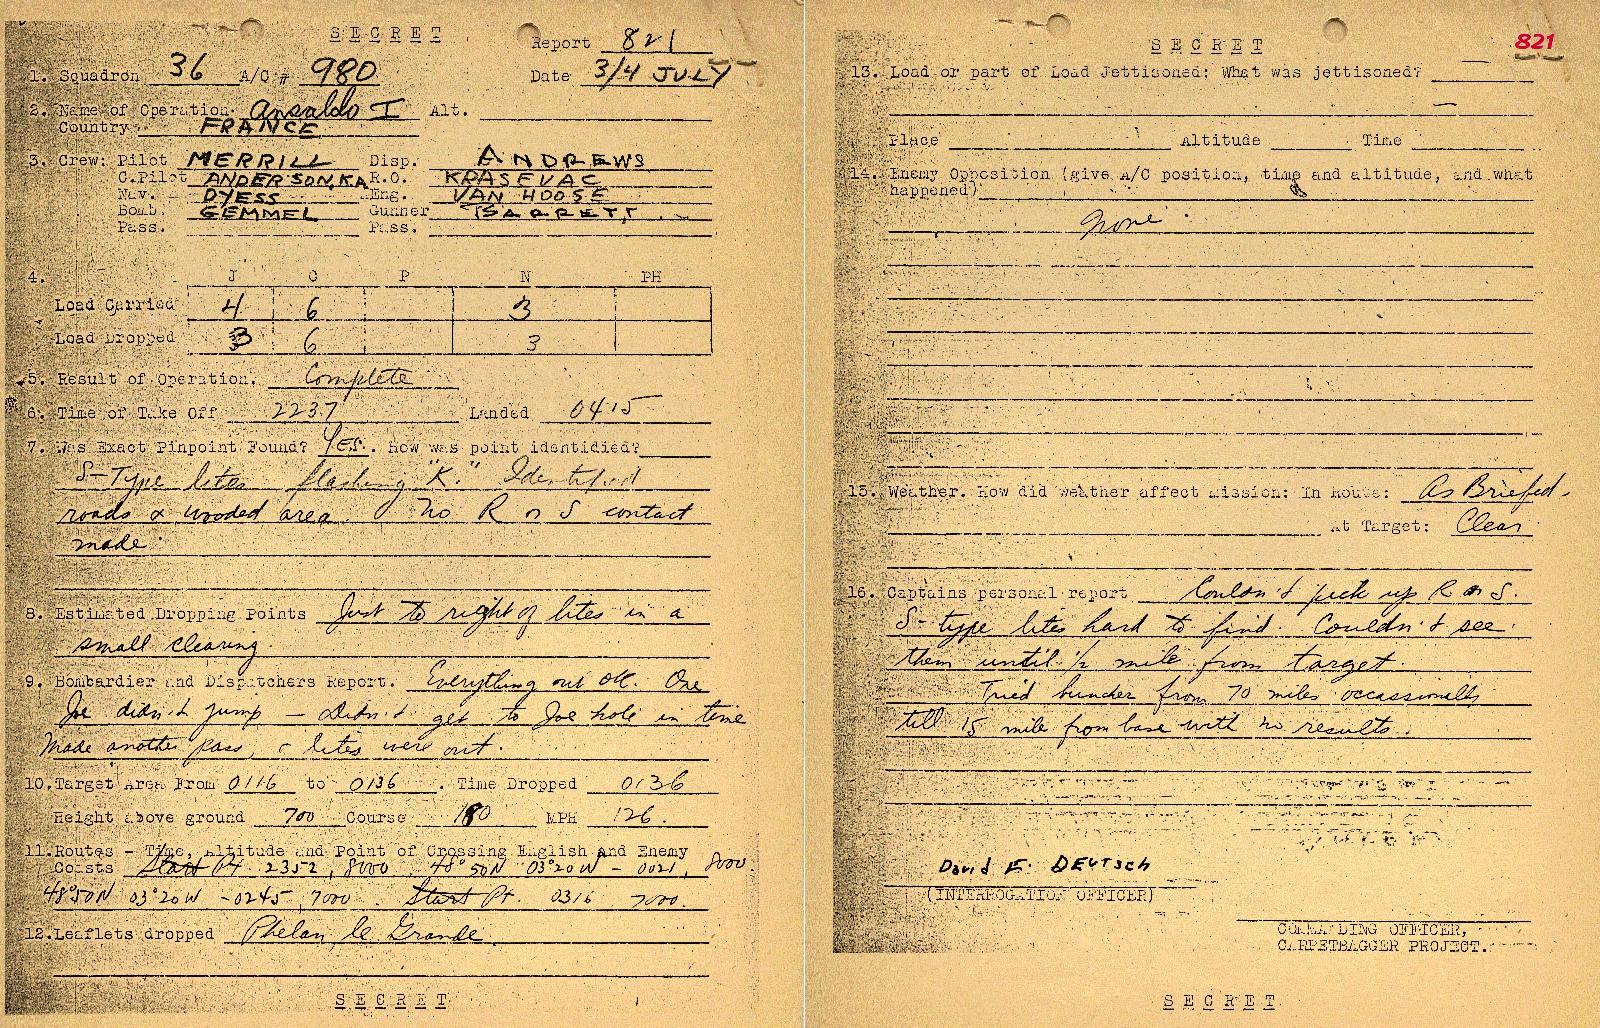 SECRET
Report 821
1. Squadron 36 A/C # 980 Date 3/4 JULY
2. Name of Operation. Ansaldo I Alt.
Country FRANCE
3. Crew: Pilot MERRILL Disp. ANDREWS
C.Pilot ANDERSON, K.A. R.O. KRASEVAC
Nav. DYESS Eng. VAN HOOSE
Bomb. GEMMEL Gunner
Pass. Pass.
4. J C P N PH
Load Carried 4 6 3
Load Dropped 3 6 3
5. Result of Operation. Complete
6. Time of Take Off 2237 Landed 0415
7. Was Exact Pinpoint Found? YES. How was point identidied?
S-Type lites flashing "K." Identified
roads & wooded area. No R or S contact
made.
8. Estimated Dropping Points Just to right of lites in a
small clearing.
9. Bombardier and Dispatchers Report. Everything out OK. One
Joe didn't jump - didn't get to Joe hole in time
Made another pass, & lites were out.
10. Target Area From 0116 to 0136. Time Dropped 0136
Height above ground 700 Course 180 MPH 126.
11. Routes - Time, Altitude and Point of Crossing English and Enemy
Coasts Start Pt. 2352, 8000 48°50N 03°20W - 0021, 8000
48°50N 03°20W - 0245, 7000. Start Pt. 0316 7000.
12. Leaflets dropped Phelan le Grande
SECRET
SECRET
821
13. Load or part of Load Jettisoned: What was jettisoned?
Place Altitude Time
14. Enemy Opposition (give A/C position, time and altitude, and what
happened)
None
15. Weather. How did weather affect mission: In Route: As Briefed.
At Target: Clear
16. Captains personal report Couldn't pick up R or S.
S-type lites hard to find. Couldn't see
them until 1/2 mile from target.
Tried buncher from 70 miles occassionally
till 15 mile from base with no results.
David E. DEUTSCH
(INTERROGATION OFFICER)
COMMANDING OFFICER,
CARPETBAGGER PROJECT.
SECRET